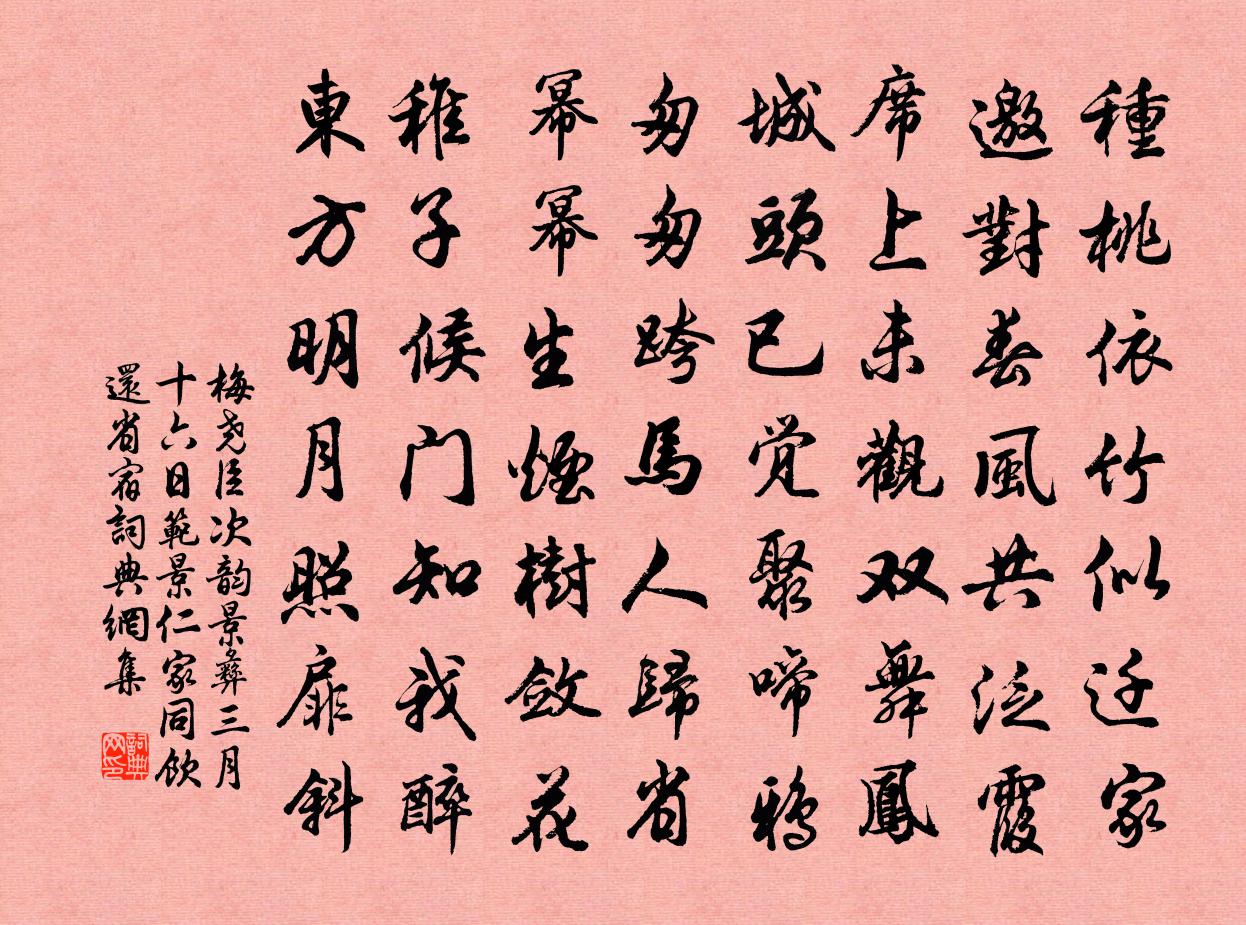 種桃依竹似迁家
邀對春風共泛霞
席上未觀双舞鳳
城頭已觉聚啼鴉
匆匆跨馬人歸省
幂幂生煙樹斂花
稚子候门知我醉
東方明月照扉斜
梅尧臣次韵景彝三月
十六日範景仁家同飲
還省宿詞典網集
詞典
网印